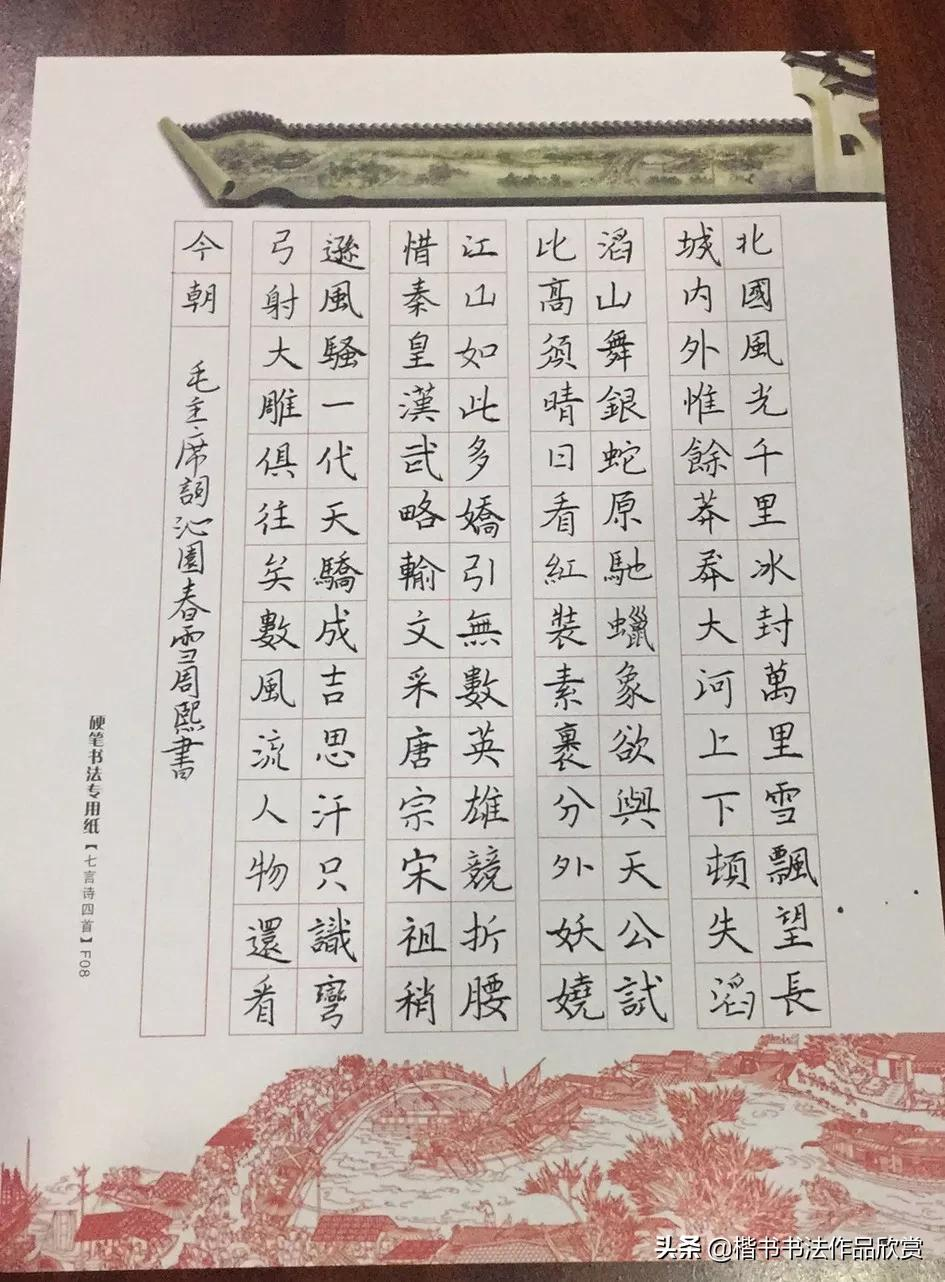 北國風光千里冰封萬里雪飄望長
城内外惟餘莽莽大河上下頓失滔
滔山舞銀蛇原馳蠟象欲與天公試
比高須晴日看紅裝素裹分外妖嬈
江山如此多嬌引無數英雄競折腰
惜秦皇漢武略輸文采唐宗宋祖稍
遜風騷一代天驕成吉思汗只識彎
弓射大雕俱往矣數風流人物還看
今朝
毛主席詞沁園春雪周熙書
硬笔书法专用纸【七言诗四首】F08
头条@楷书书法作品欣赏